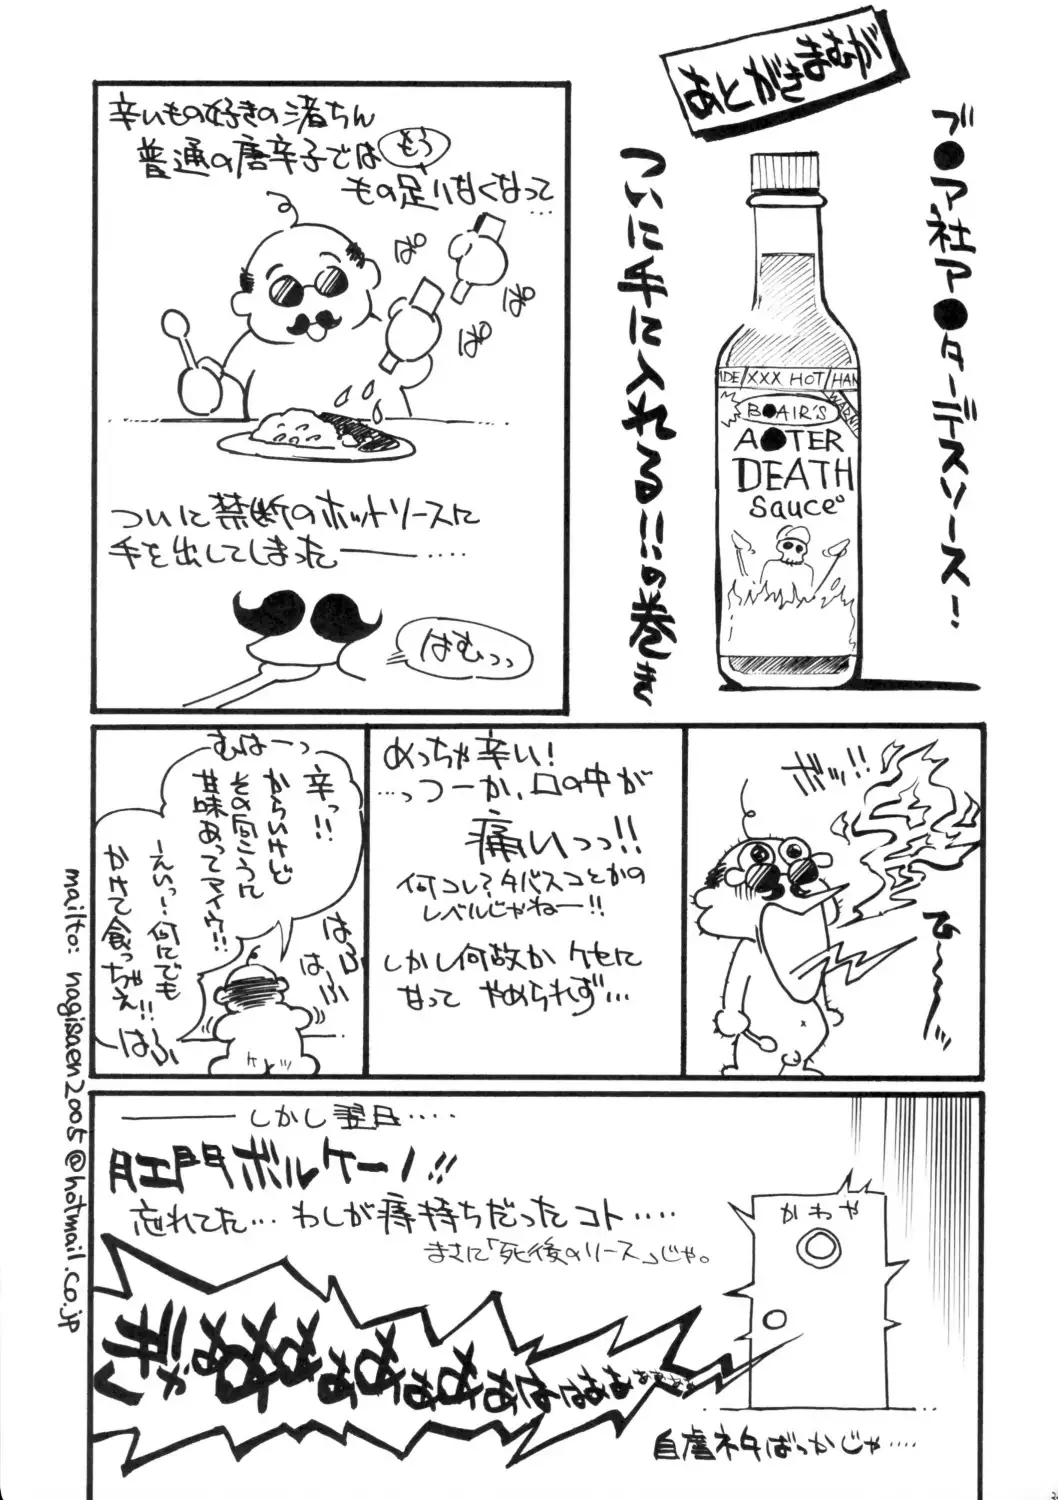 あとがきまむが
ブ●ア社ア●ターデスソース!
ついに手に入れる!!の巻き
IDE/XXX HOT/HAN
WARNIN
B●AIR'S
A●TER
DEATH
Sauce
辛いもの好きの渚ちん
普通の唐辛子ではもう
もの足りなくなって…
ぱ
ぱ
ぱ
ついに禁断のホットソースに
手を出してしまった――‥‥
はむっっ
ボッ!!
ひ～～～っ
めっちゃ辛い!
…っつーか、口の中が
痛いっっ!!
何コレ?タバスコとかの
レベルじゃねー!!
しかし何故かケセに
なって やめられず…
むはーっ
辛っ!!
からいけど
その向こうに
甘味あってマイウ!!
ーえいっ…何にでも
かけて食っちゃえ!!
はふ
はふ
はふ
――しかし翌日‥‥
肛門ボルケーノ!!
忘れてた…わしが痔持ちだったコト‥‥
まさに「死後のソース」じゃ。
かわや
自虐ネタばっかじゃ‥‥
mailto: nagisaen2005@hotmail.co.jp